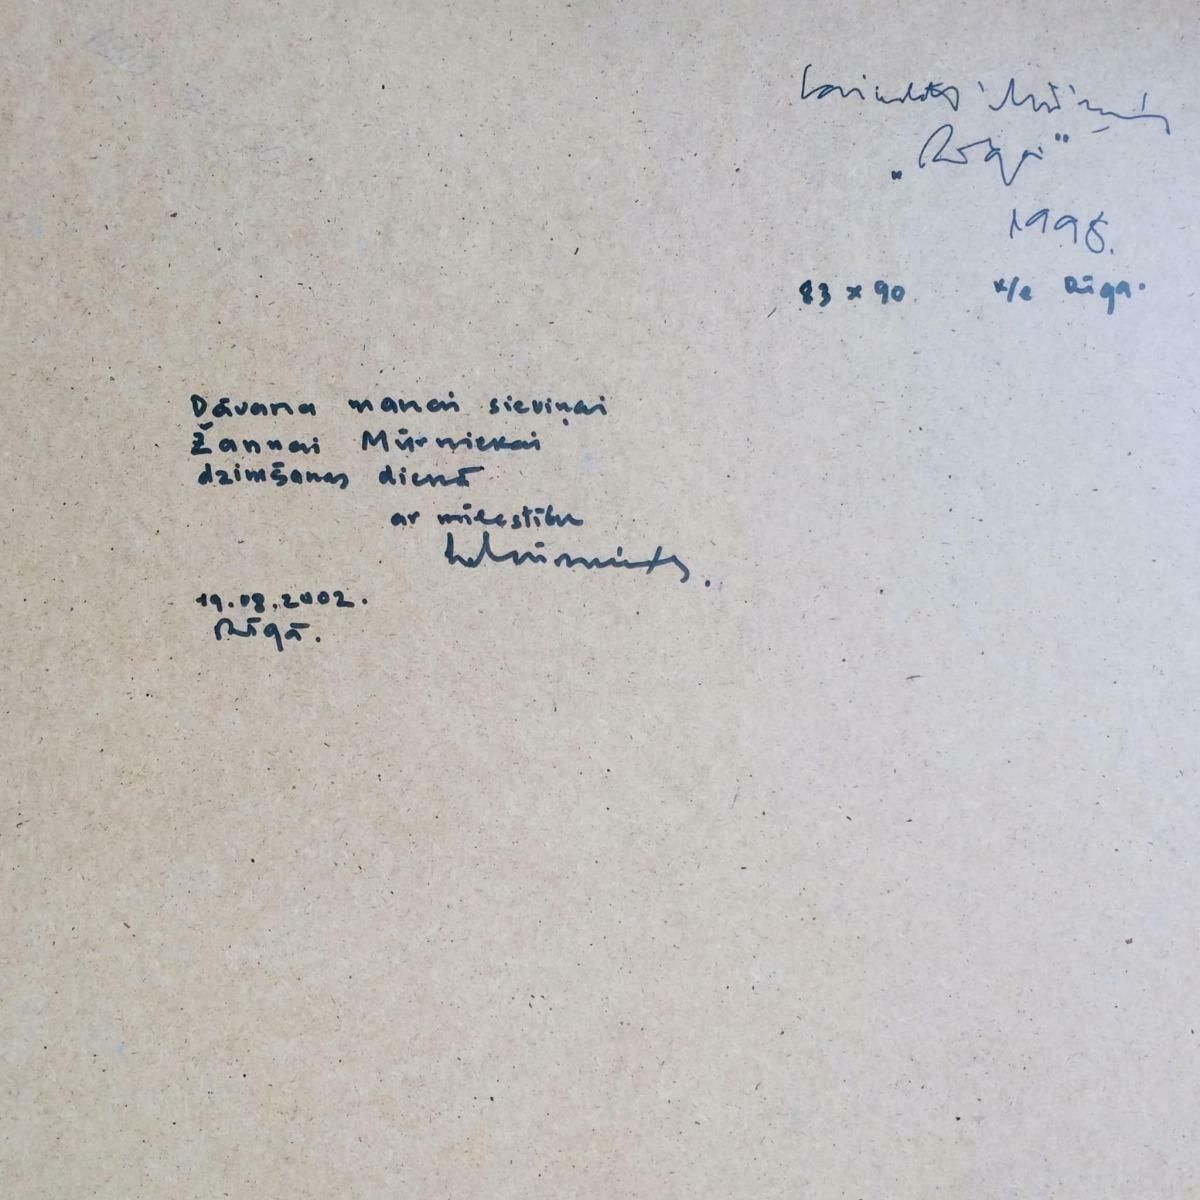 Laimdots Mūrnieks
„Rīga"
1998.
83 x 90 k/e Rīga.
Dāvana manai sieviņai
Žannai Mūrniekai
dzimšanas dienā
ar mīlestību
LMūrnieks.
19.08.2002.
Rīgā.